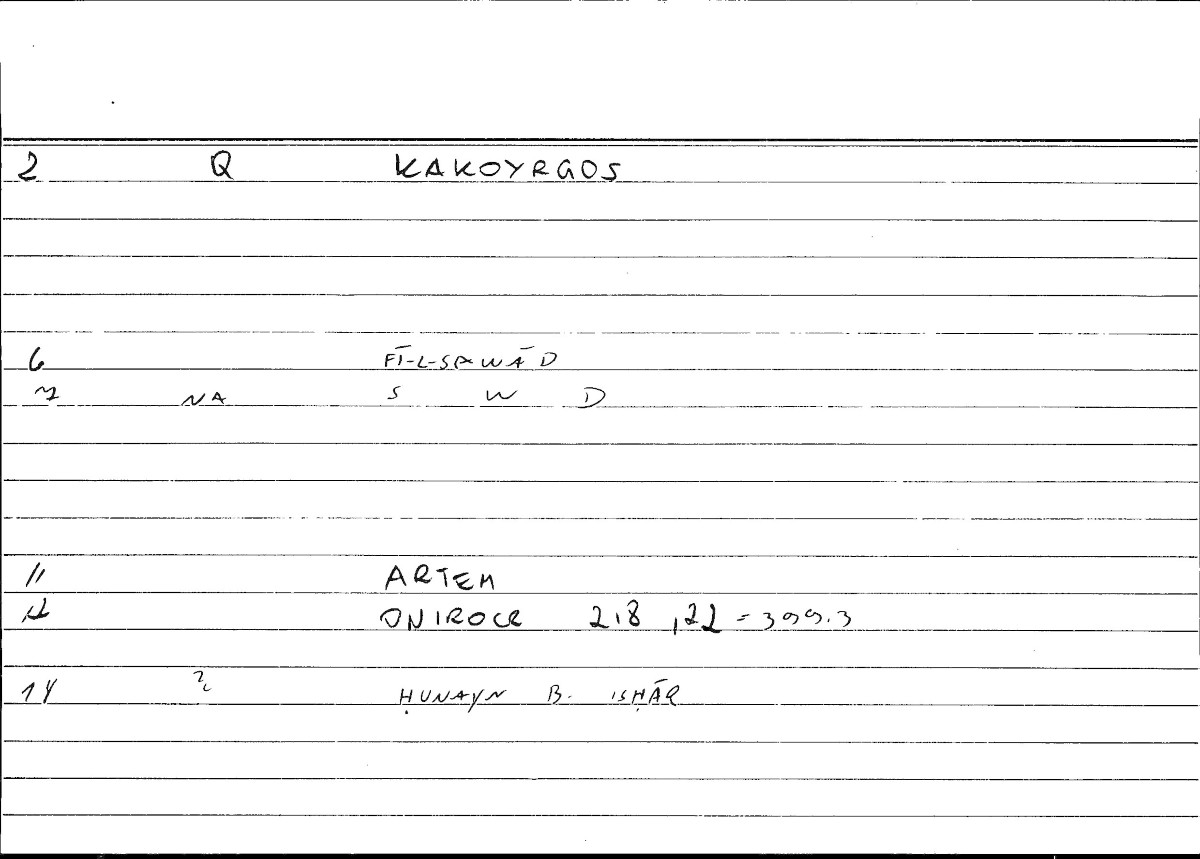 2 Q KAKOYRGOS
6 FĪ-L-SAWĀD
7 NA S W D
11 ARTEM
12 ONIROCR 218,22 = 399.3
14 ḤUNAYN B. ISḤĀQ